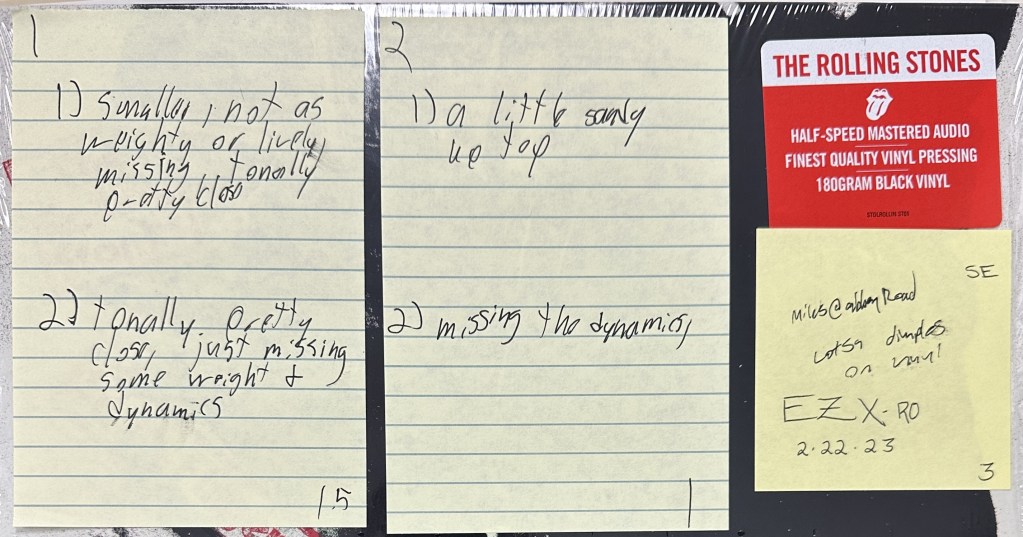 1
1) Smaller, not as
weighty or lively,
missing tonally
pretty close
2) tonally pretty
close, just missing
some weight &
dynamics
1.5
2
1) a little sandy
up top
2) missing the dynamics,
1
THE ROLLING STONES
HALF-SPEED MASTERED AUDIO
FINEST QUALITY VINYL PRESSING
180GRAM BLACK VINYL
SE
miles@abbey Road
Lotsa dimples
on vinyl
EZX-RO
2.22.23
3